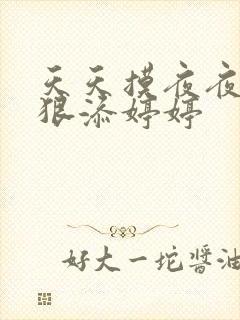 天天摸夜夜
狠添婷婷
好大一坨醬油